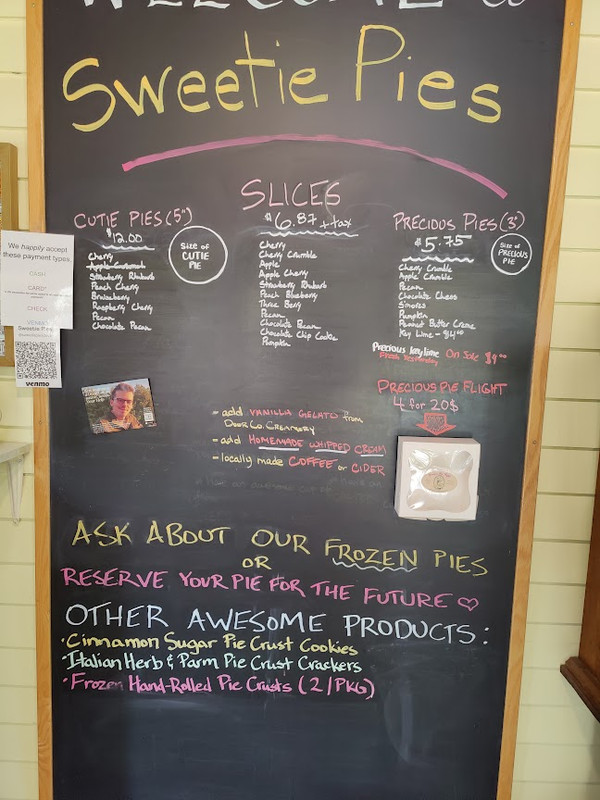 WELCOME to
Sweetie Pies
CUTIE PIES (5")
$12.00
Size of
CUTIE
PIE
Cherry
Apple Caramel
Strawberry Rhubarb
Peach Cherry
Raspberry Cherry
Pecan
Chocolate Pecan
SLICES
$6.87 + tax
Cherry
Cherry Crumble
Apple
Apple Cherry
Strawberry Rhubarb
Peach Blueberry
Three Berry
Pecan
Chocolate Pecan
Chocolate Chip Cookie
Pumpkin
PRECIOUS PIES (3")
$5.75
Size of
PRECIOUS
PIE
Cherry Crumble
Apple Crumble
Pecan
Chocolate Chess
S'mores
Pumpkin
Peanut Butter Creme
Key Lime - $4.00
Precious key lime On Sale $4.00
PRECIOUS PIE FLIGHT
4 for 20$
We happily accept
these payment types.
CASH
CARD*
CHECK
VENMO
Sweetie Pies
venmo
- add VANILLA GELATO from
DOOR CO. CREAMERY
- add HOMEMADE WHIPPED CREAM
- locally made COFFEE or CIDER
ASK ABOUT OUR FROZEN PIES
OR
RESERVE YOUR PIE FOR THE FUTURE ♡
OTHER AWESOME PRODUCTS:
• Cinnamon Sugar Pie Crust Cookies
• Italian Herb & Parm Pie Crust Crackers
• Frozen Hand-Rolled Pie Crusts (2/PKG)